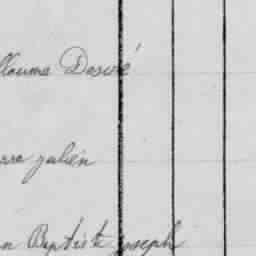 llaume Desiré
rre julien
n Baptiste joseph